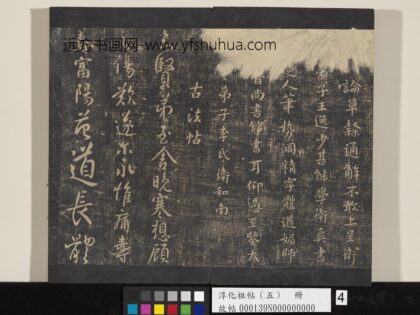 遠方書画网 www.yfshuhua.com
論草隸通解不敢上呈衛
弟子王逸少甚能學衛真書
逼人筆勢洞精字體遒媚師
尚書館書耳仰憑至鑒大
弟子李氏衛和南
古法帖
賢弟至舍晚寒想顧
傷歎遂不永惟痛壽
富陽益道長
淳化祖帖（五） 冊
故帖 000139N000000000
4